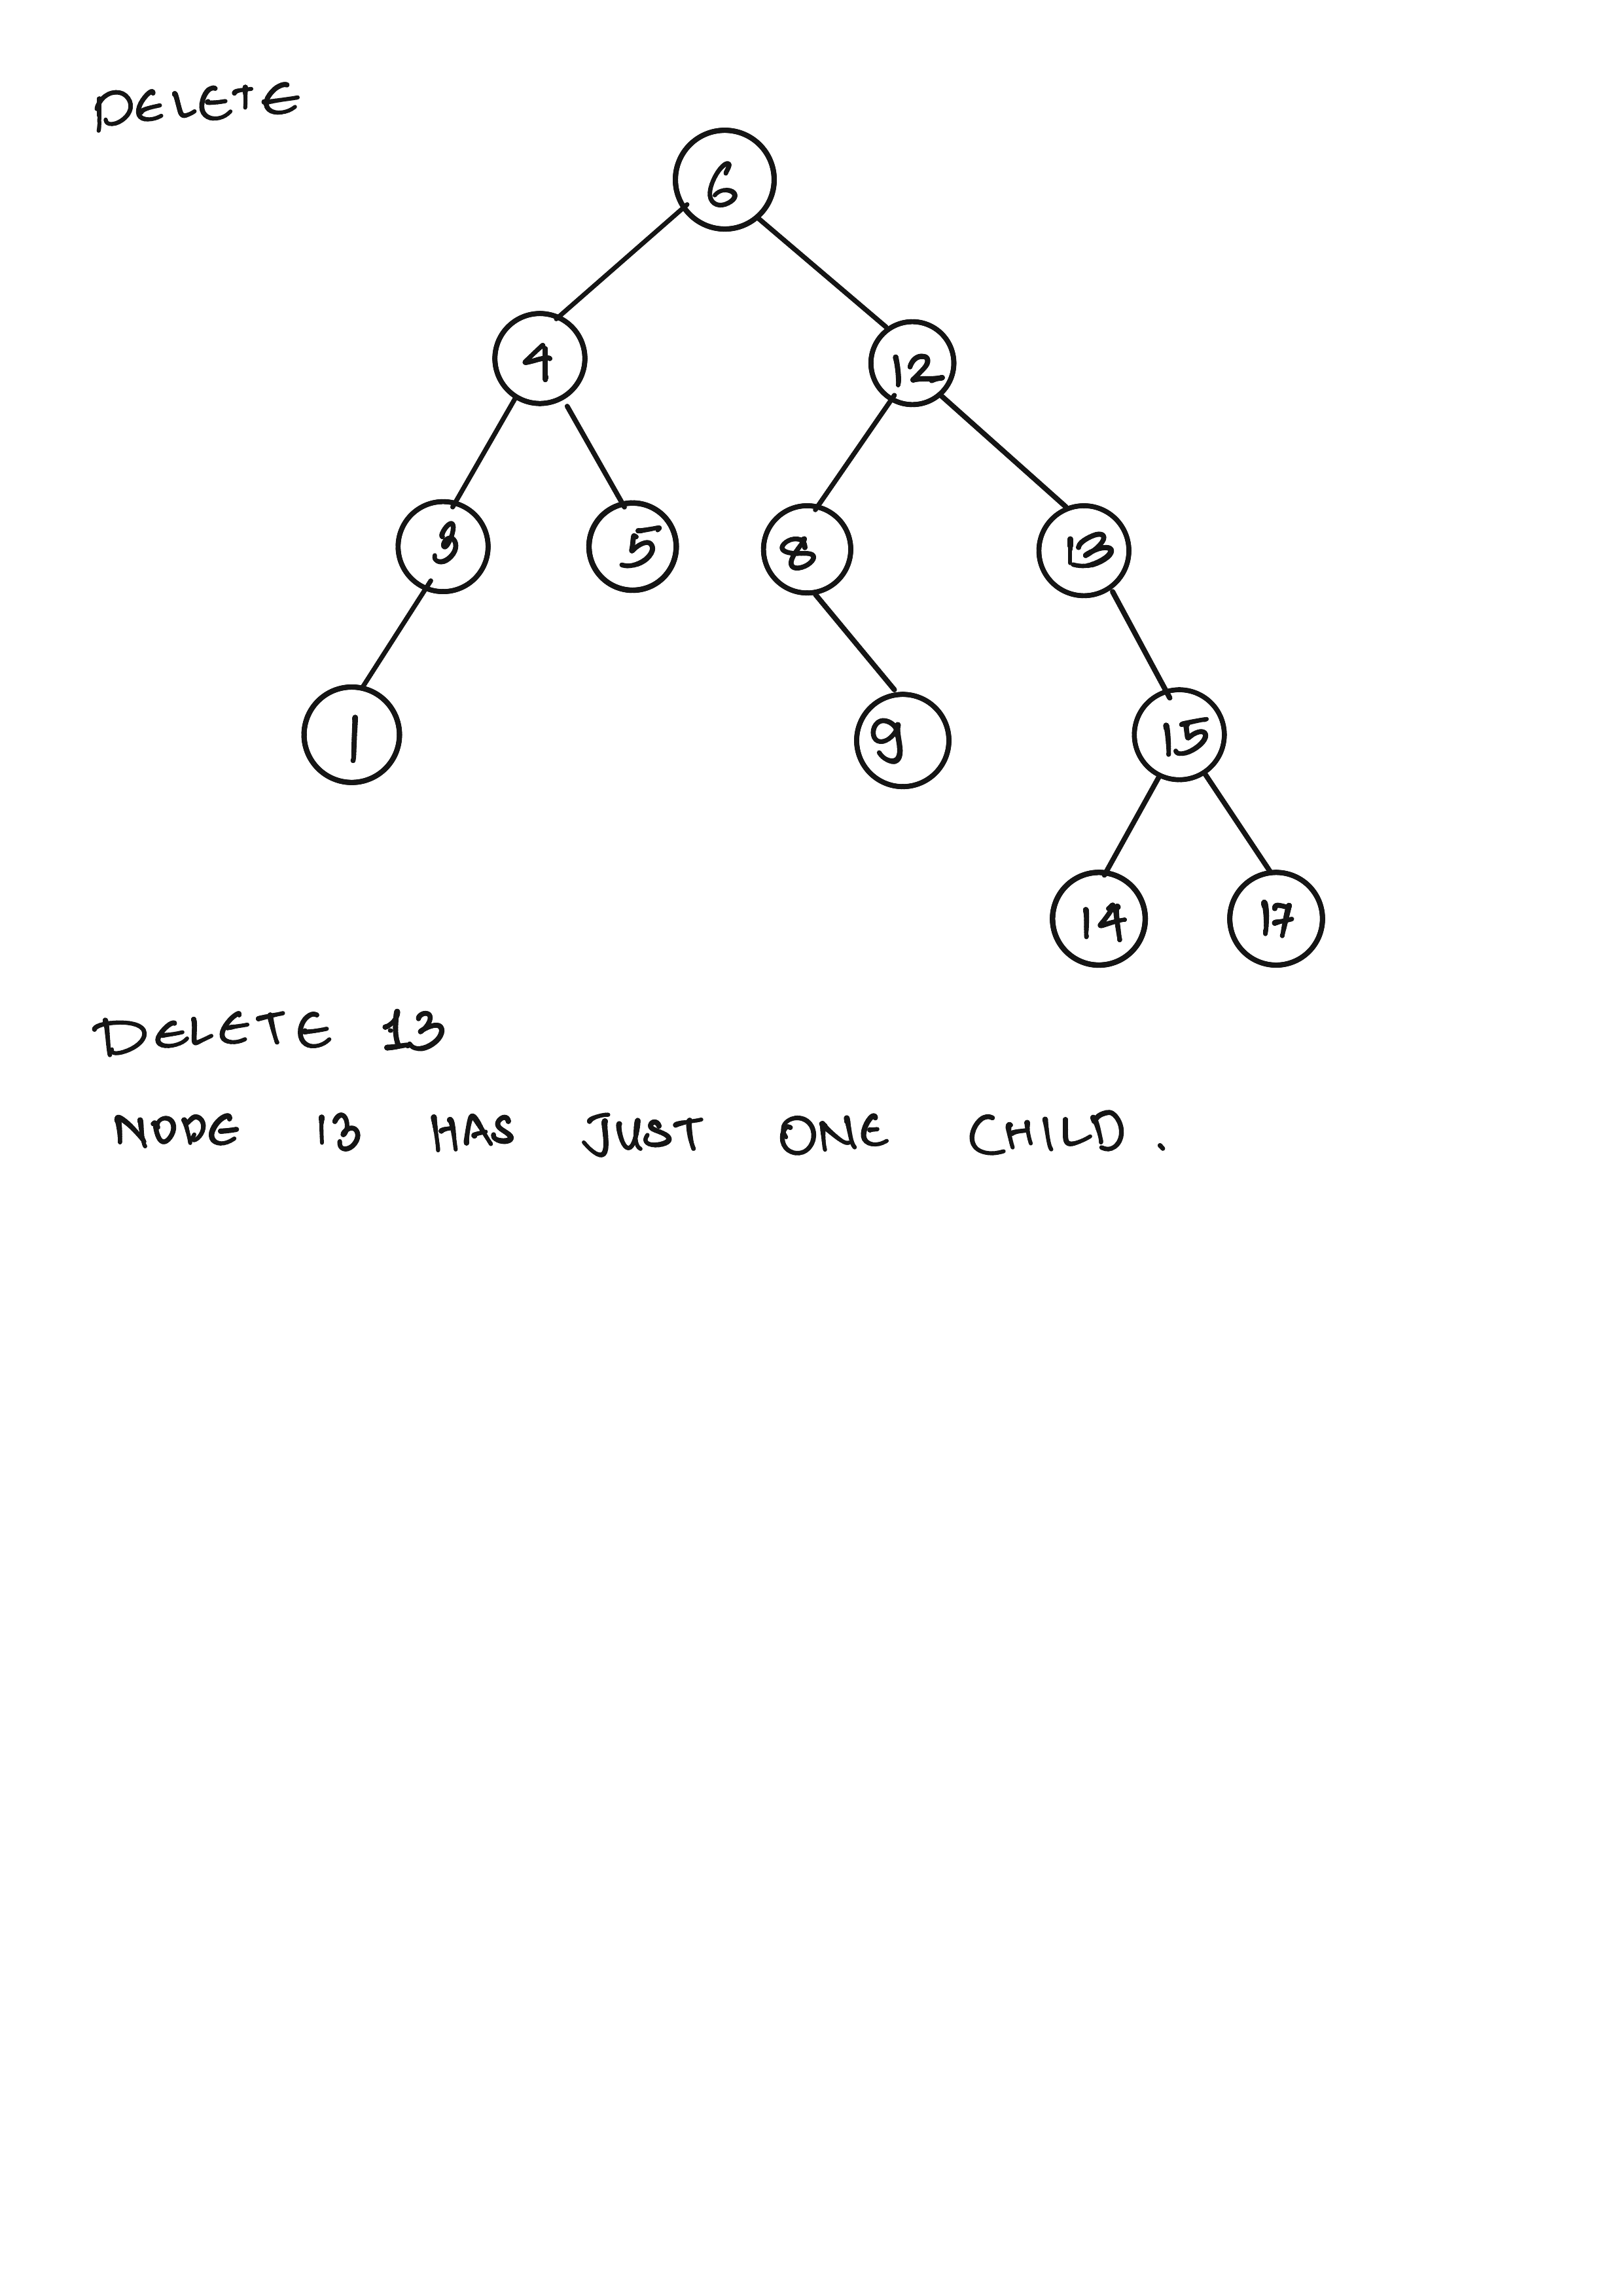 DELETE
6
4 12
3 5 8 13
1 9 15
14 17
DELETE 13
NODE 13 HAS JUST ONE CHILD.